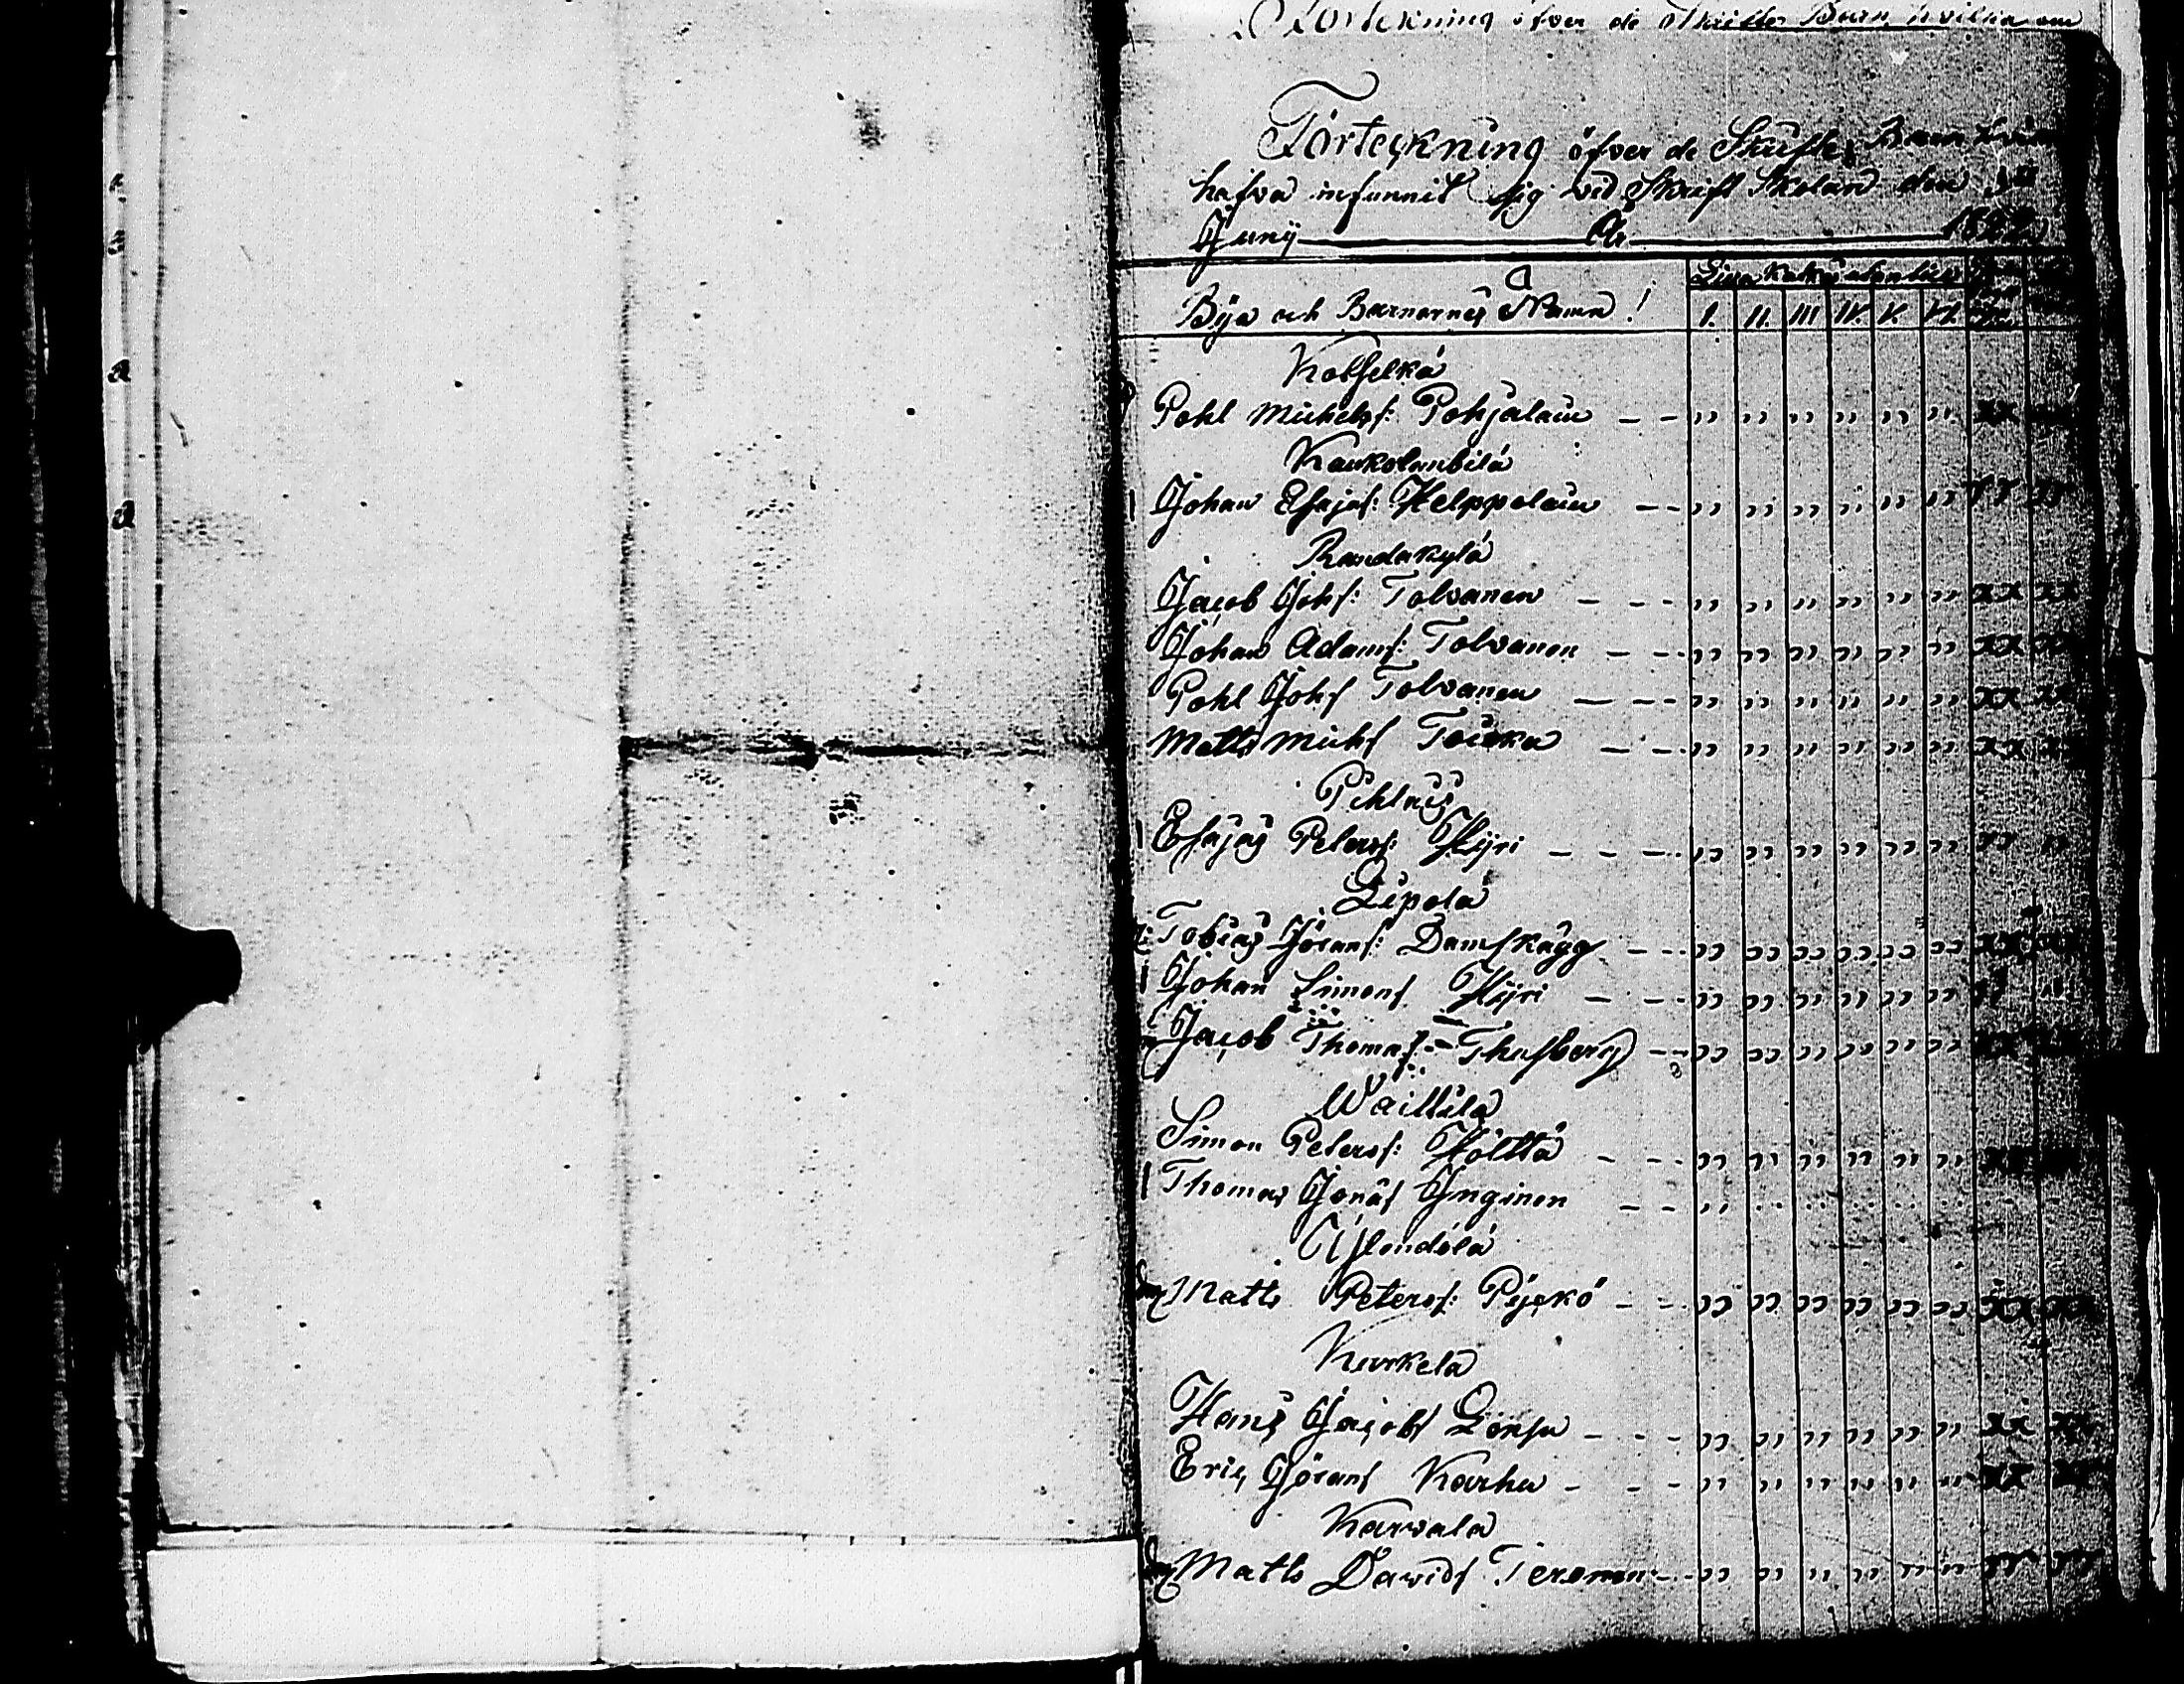 Förteckning öfver de Skrifte Barn hvilka
Förteckning öfver de Skrifte Barn
hafva infunnit sig vid Skrift Skolan den
Junÿ År
Bÿa och Barnernes Namn! I. II. III IV. V. VI.
Kotselkä
Pohl Michelss: Pohjalain — — ,, ,, ,, ,, ,, ,, xx
Kaukolanbilä
Johan Esajas: Helppolain — — ,, ,, ,, ,, ,, ,,
Randakylä
Jacob Johs: Tolvanen — — — ,, ,, ,, ,, ,, ,, xx xx
Johan Adams: Tolvanen — — — ,, ,, ,, ,, ,, ,, xx xx
Pohl Johs Tolvanen — — — ,, ,, ,, ,, ,, ,, xx xx
Matts Michs Toicka — — — ,, ,, ,, ,, ,, ,, xx xx
Pihlais
Esajas Peterss: Hÿri — — — ,, ,, ,, ,, ,, ,,
Lipola
Tobias Jörans: Damskägg — — ,, ,, ,, ,, ,, ,, xx
Johan Simons Hÿri — — — ,, ,, ,, ,, ,, ,,
Jacob Thomas: Thusberg — — ,, ,, ,, ,, ,, ,, xx
Waittila
Simon Peterss: Höltta — — — ,, ,, ,, ,, ,, ,,
Thomas Jonas Inginen — — ,,
Matts Peterss: Pÿckö — — ,, ,, ,, ,, ,, ,, xx xx
Kurkela
Hans Jacobs Lonsu — — — ,, ,, ,, ,, ,, ,, xx xx
Eric Jörans Karhu — — — ,, ,, ,, ,, ,, ,, xx xx
Karvala
Matts Davids Teronen — ,, ,, ,, ,, ,, ,,